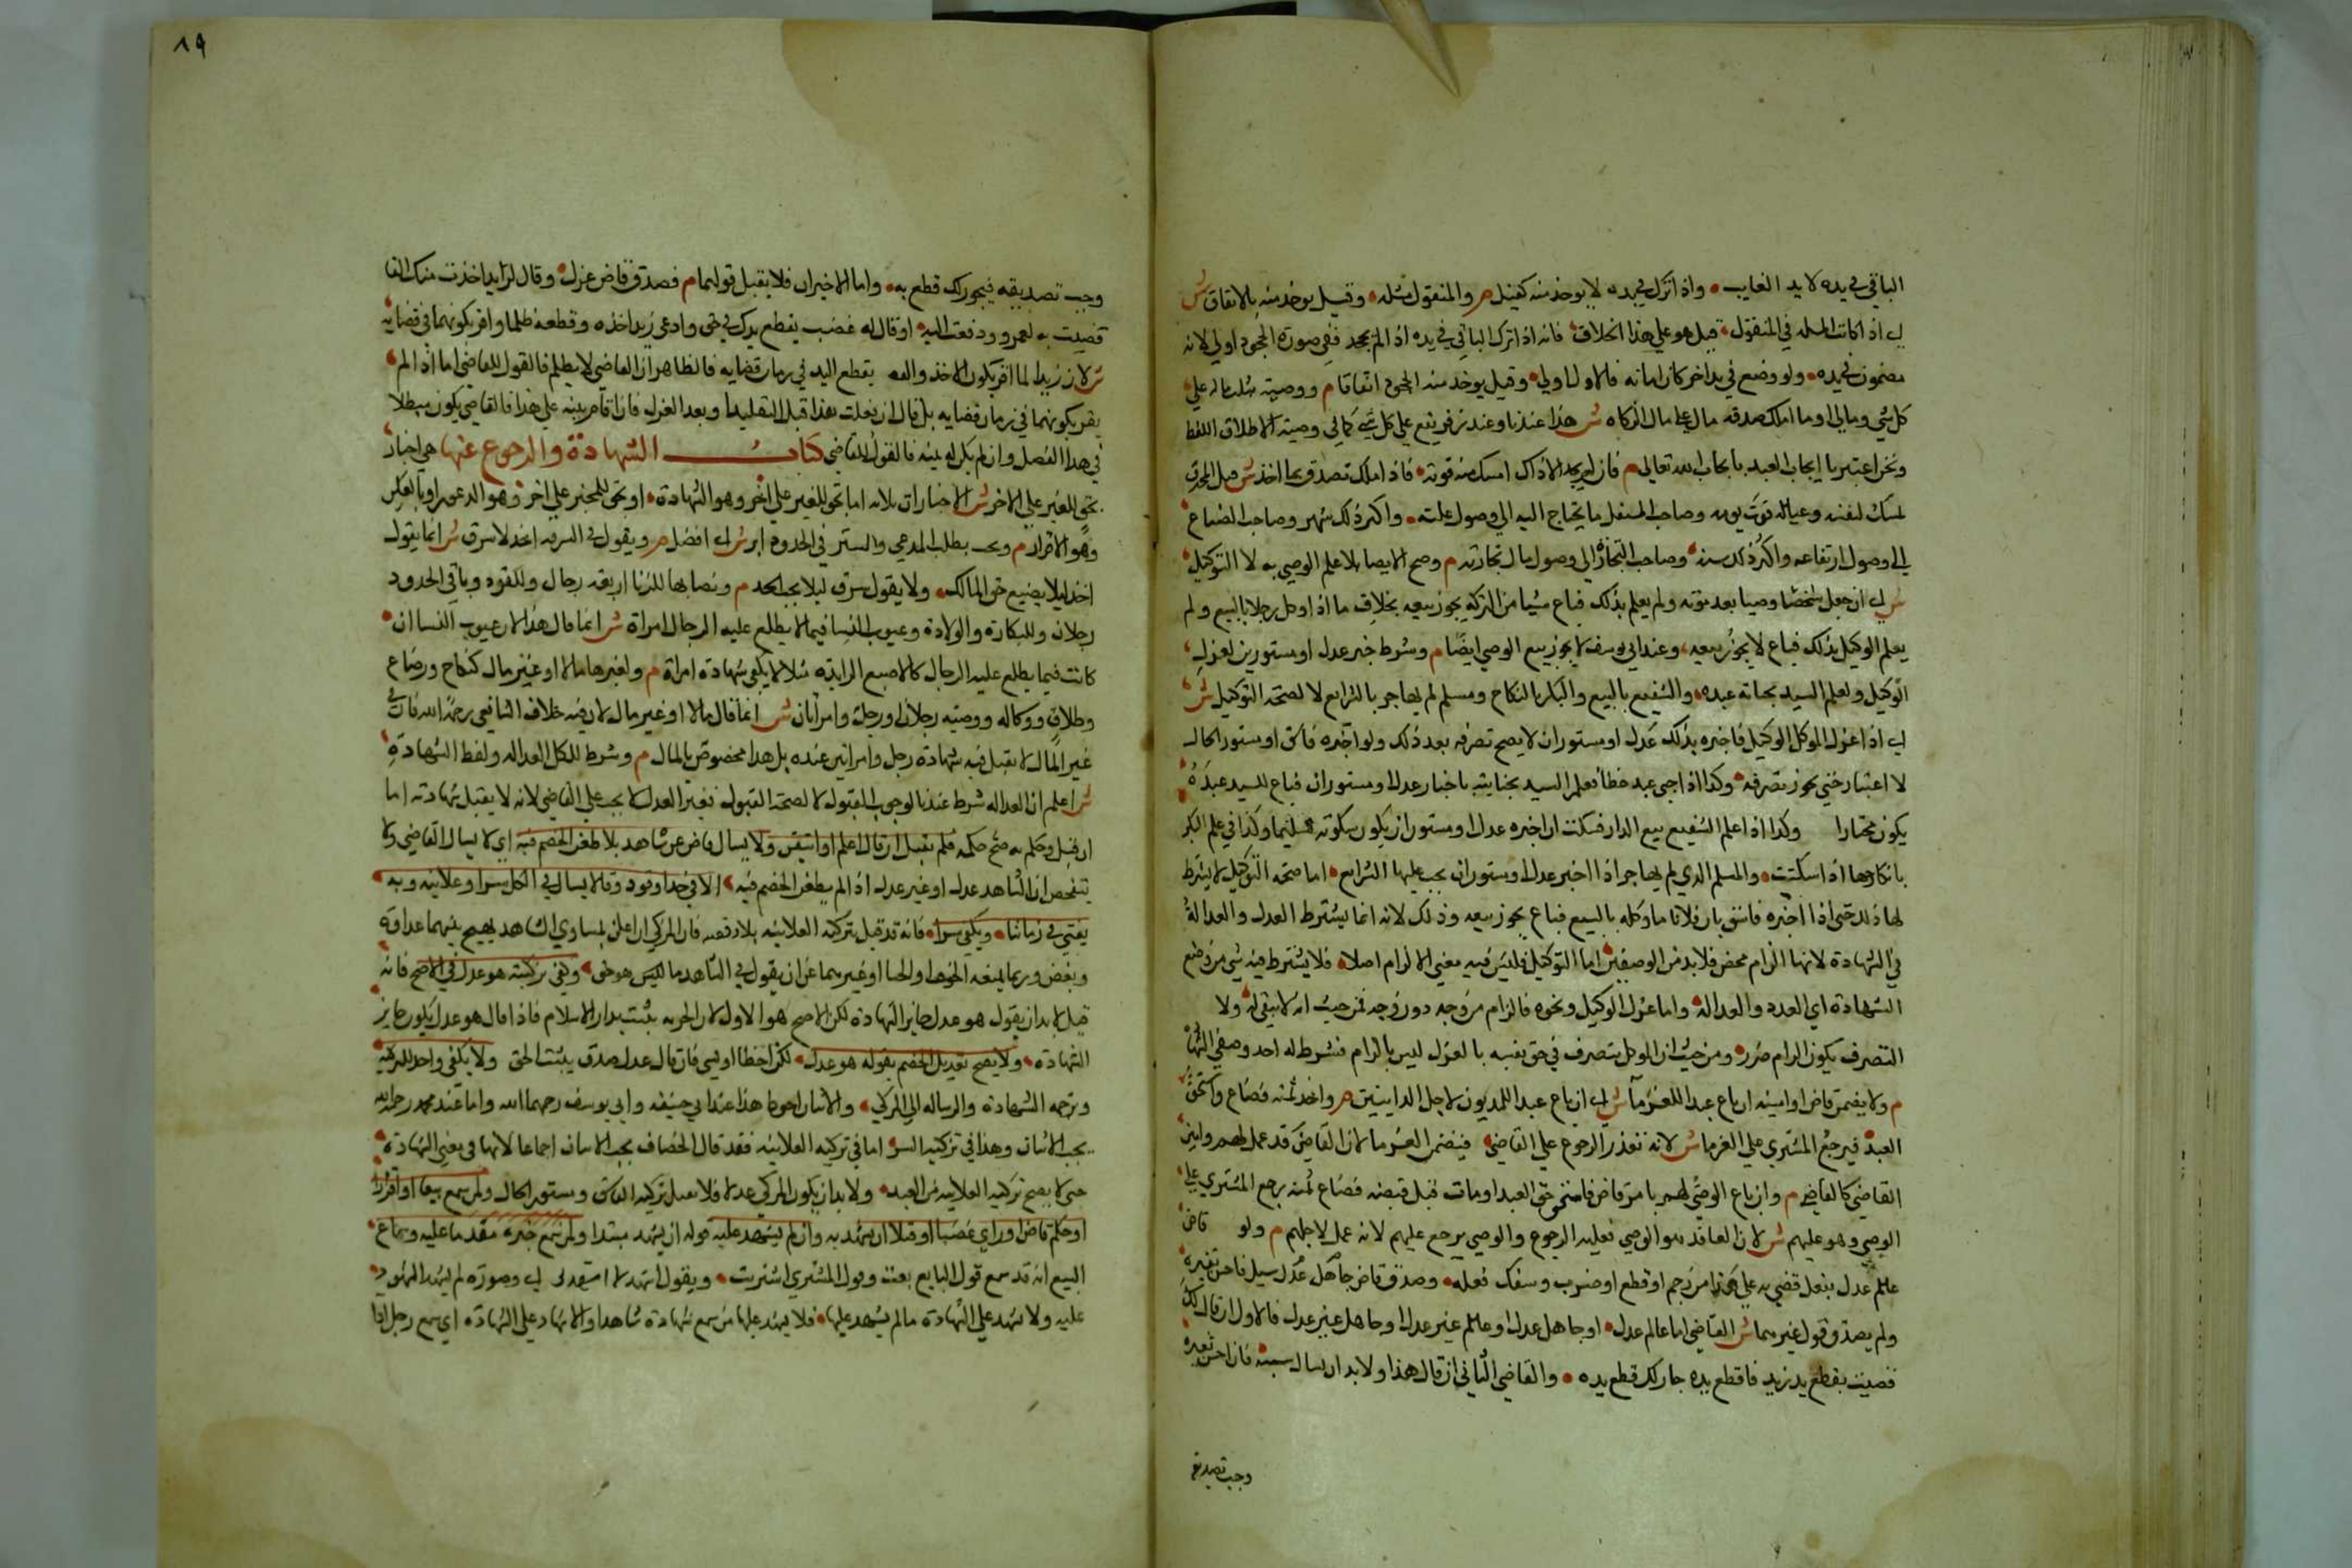 الباقي في يده لا يد الغايب واذا ترك في يده لا يوخذ منه كفيل م والمنقول مثله وقيل يوخذ منه بالاتفاق ش
اي اذا كانت المسله في المنقول قيل هو علي هذا الخلاف فانه اذا ترك الباقي في يده اذا لم يجحد ففي صورة الجحود اولي لانه
مضمون في يده ولو وضع في يد اخر كان امانه فالاول اولي وقيل يوخذ منه اتفاقا م ووصيته بثلث ماله علي
كل شي ومالي او ما املك صدقه علي مال الزكاه ش هذا عندنا وعند زفر يقع علي كل شي كما في وصيته لاطلاق اللفظ
ونحن اعتبرنا ايجاب العبد بايجاب الله تعالي م فان لم يجد الا ذاك امسك منه قوته فاذا ملك تصدق بما اخذ ش قيل المحترف
يمسك لنفسه وعياله قوت يومه وصاحب المستغل ما يحتاج اليه الي وصول غلته واكثر ذلك شهر وصاحب الضياع
الي وصول ارتفاعه واكثر ذلك سنة وصاحب التجارة الي وصول مال تجارته م وصح الايصا بلا علم الوصي به لا التوكيل
ش اي ان جعل شخصا وصيا بعد موته ولم يعلم بذلك فباع شيا من التركه يجوز بيعه بخلاف ما اذا وكل رجلا بالبيع ولم
يعلم الوكيل بذلك فباع لا يجوز بيعه وعند ابي يوسف لا يجوز بيع الوصي ايضا م وشرط خبر عدل او مستورين لعزل
الوكيل ولعلم السيد بجناية عبده والشفيع بالبيع والبكر بالنكاح ومسلم لم يهاجر بالشرايع لا لصحة التوكيل ش
اي اذا عزل الموكل الوكيل فاخبره بذلك عدل او مستوران لا يصح تصرفه بعد ذلك ولو اخبره فاسق او مستور الحال
لا اعتبار حتي يجوز تصرفه وكذا اذا جني عبد خطا فعلم السيد بجنايته باخبار عدل او مستوران فباع السيد عبده
يكون مختارا وكذا اذا علم الشفيع ببيع الدار فسكت ان اخبره عدل او مستوران يكون سكوته تسليما وكذا في علم البكر
بانكاحها اذا سكتت والمسلم الذي لم يهاجر اذا اخبر عدل او مستوران يجب عليها الشرايع اما صحة التوكيل لا يشترط
لها ذلك حتي اذا اخبره فاسق بان فلانا وكله بالبيع فباع يجوز بيعه وذلك لانه انما يشترط العدد والعدالة
في الشهادة لانها الزام محض فلا بد من الوصفين اما التوكيل فليس فيه معني الالزام اصلا فلا يشترط فيه شي من
الشهادة اي العدد والعدالة واما عزل الوكيل ونحوه فالزام من وجه دون وجه فمن حيث انه لا يبقي له ولا
التصرف يكون الزام ضرر ومن حيث ان الموكل يتصرف في حق نفسه بالعزل ليس بالزام فشرط له احد وصفي الشهادة
م ولا يضمن قاض او امينه ان باع عبدا للغرما ش اي ان باع عبدا للمديون لاجل الداينين م واخذ ثمنه فضاع واستحق
العبد فيرجع المشتري علي الغرما ش لانه تعذر الرجوع علي القاضي فيضمن الغرما لان القاضي قد عمل لهم وامين
القاضي كالقاضي م وان باع الوصي لهم بامر قاض فاستحق العبد او مات قبل قبضه فضاع ثمنه يرجع المشتري علي
الوصي وهو عليهم ش لان العاقد هو الوصي فعليه الرجوع والوصي يرجع عليهم لانه عمل لاجلهم م ولو قاض
عالم عدل بفعل قضي به علي هذا من رجم او قطع او ضرب وسعك فعله وصدق قاض جاهل عدل سيل فاحسن تفسيره
ولم يصدق قول غيرهما ش القاضي اما عالم عدل او جاهل عدل او عالم غير عدل او جاهل غير عدل فالاول ان قال لك
قضيت بقطع يد زيد فاقطع يده جاز لك قطع يده والقاضي الثاني ان قال هذا ولا بد ان يسال سببه فان احسن تفسيره
وجب تصديقه
٨٩
وجب تصديقه فيجوز لك قطع به واما الاخيران فلا يقبل قولهما م فصدق قاض عزل وقال لزيد اخذت منك الفا
قضيت به لعمرو ودفعت اليه او قال له قضيت بقطع يدك في حق وادعي زيد اخذه وقطعه ظلما واقر بكونهما في قضايه
ش لان زيدا لما اقر بكون الاخذ و قطع اليد في زمان قضايه فالظاهر ان القاضي لا يظلم فالقول للقاضي اما اذا لم
يقر بكونهما في زمان قضايه بل قال ان فعلت هذا قبل التقليد او بعد العزل فان اقام بينه علي هذا فالقاضي يكون مبطلا
في هذا الفصل وان لم يكن له بينه فالقول للقاضي كتاب الشهادة والرجوع عنها هي اخبار
بحق للغير علي الاخر ش الاخبارات ثلاثه اما بحق للغير علي اخر وهو الشهادة او بحق للمخبر علي اخر وهو الدعوي او بالعكس
وهو الاقرار م ويجب بطلب المدعي والستر في الحدود ابر ش اي افضل م ويقول في السرقه اخذ لا سرق ش انما يقول
اخذ ليلا يضيع حق المالك ولا يقول سرق ليلا يجب الحد م ونصابها للزنا اربعة رجال وللقود وباقي الحدود
رجلان وللبكارة والولادة وعيوب النسا فيما لا يطلع عليه الرجال امراة ش انما قال هذا لان عيوب النسا ان
كانت فيما يطلع عليه الرجال كالاصبع الزايدة مثلا لا يكفي شهادة امراة م ولغيرها مالا او غير مال كنكاح ورضاع
وطلاق ووكاله ووصيه رجلان او رجل وامراتان ش انما قال مالا او غير مال لان فيه خلاف الشافعي رحمه الله فان في
غير المال لا يقبل فيه شهادة رجل وامراتين عنده بل هذا مخصوص بالمال م وشرط للكل العداله ولفظ الشهادة
ش اعلم ان العداله شرط عندنا لوجوب القبول لا لصحة القبول فغير العدل لا يجب علي القاضي لانه لا يقبل شهادته اما
ان قبل وحكم به صح حكمه فلم تقبل ان قال اعلم او اتيقن ولا يسال قاض عن شاهد بلا طعن الخصم فيه اي لا يسال القاضي ولا
يتفحص ان الشاهد عدل او غير عدل اذا لم يطعن الخصم فيه الا في حد او قود وقالا يسال في الكل سرا وعلانيه وبه
يفتي في زماننا ويكفي سرا فانه قد قيل تزكية العلانيه بلا وفتنه فان المزكي ان اعلن بمساوي الشاهد يهيج بينهما عداوة
وبغض وربما يمنعه الخوف او الحيا او غيرهما عن ان يقول في الشاهد ما ليس هو حق وكفي تزكيته هو عدل في الاصح فانه
قيل لا بد ان يقول هو عدل جايز الشهادة لكن الاصح هو الاول لان الحريه يثبت بدار الاسلام فاذا قال هو عدل يكون جايز
الشهادة ولا يصح تعديل الخصم بقوله هو عدل لكن اخطا او نسي فان قال عدل صدق يثبت الحق ولا يكفي واحد للتزكيه
وترجمه الشهادة والرساله الي المزكي والاثنان احوط هذا عند ابي حنيفه وابي يوسف رحمهما الله واما عند محمد رحمه الله
يجب الاثنان وهذا في تزكية السر اما في تزكيه العلانيه فقد قال الخصاف يجب الاثنان اجماعا لانها في معني الشهادة
حتي لا يصح تزكيه العلانيه من العبد ولا بد ان يكون المزكي عدلا فلا تقبل تزكيه الفاسق ومستور الحال ولمن سمع بيعا او اقرارا
او حكم قاض او راي غصبا او قتلا ان يشهد به وان لم يشهد عليه قوله ان يشهد مبتدا ولمن سمع خبره مقدما عليه وسماع
البيع انه قد سمع قول البايع بعت وقول المشتري اشتريت ويقول اشهد لا اشهدني اي وصورة لم يشهد المشهود
عليه ولا يشهد علي الشهادة ما لم يشهد عليها فلا يشهد عليها من سمع شهادة شاهد او الاشهاد علي الشهادة اي سمع رجل اذا